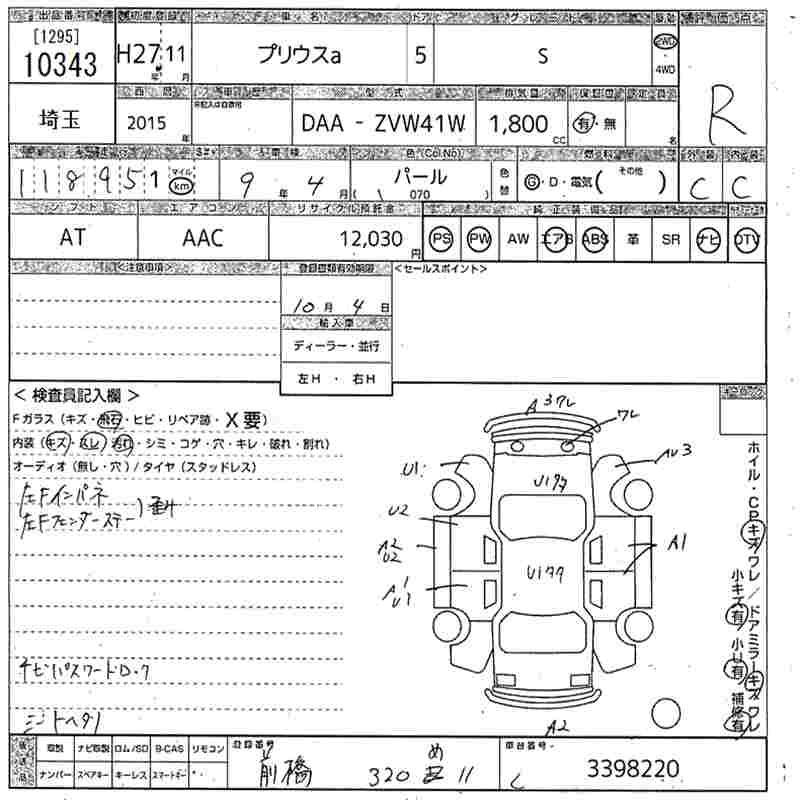 出品番号 初度登録 車名 ドア グレード
[1295]
10343 H27年 11月 プリウスa 5 S 2WD・4WD R
西暦 型式 排気量
埼玉 2015年 DAA - ZVW41W 1,800cc 有・無 名
車検 色(Col No) 燃料 外装 内装
118951 マイル km 9年 4月 パール ( 070 ) 色替 G・D・電気( その他 ) C C
シフト エアコン リサイクル預託金 純正装備品
AT AAC 12,030円 PS PW AW エアB ABS 革 SR ナビ DTV
<注意事項> 登録書類有効期限 <セールスポイント>
10月 4日
輸入車
ディーラー・並行
左H ・ 右H
<検査員記入欄>
Fガラス(キズ・飛石・ヒビ・リペア跡・X要)
内装(キズ・スレ・汚れ・シミ・コゲ・穴・キレ・破れ・割れ)
オーディオ(無し・穴)/タイヤ(スタッドレス)
左Fインパネ
左Fフェンダーステー
ナビパスワードロック
シートヘタリ
A ワレ
ワレ
U1
AU3
U2
A2
U2
A1
A1
U1
A2
ホイル・CPキズワレ/ドアミラーキズワレ
小キズ有 小U有 補修有
取説 ナビ取説 ロム/SD B-CAS リモコン 登録番号 車台番号
ナンバー スペアキー キーレス スマートキー 前橋 320 め 11 3398220